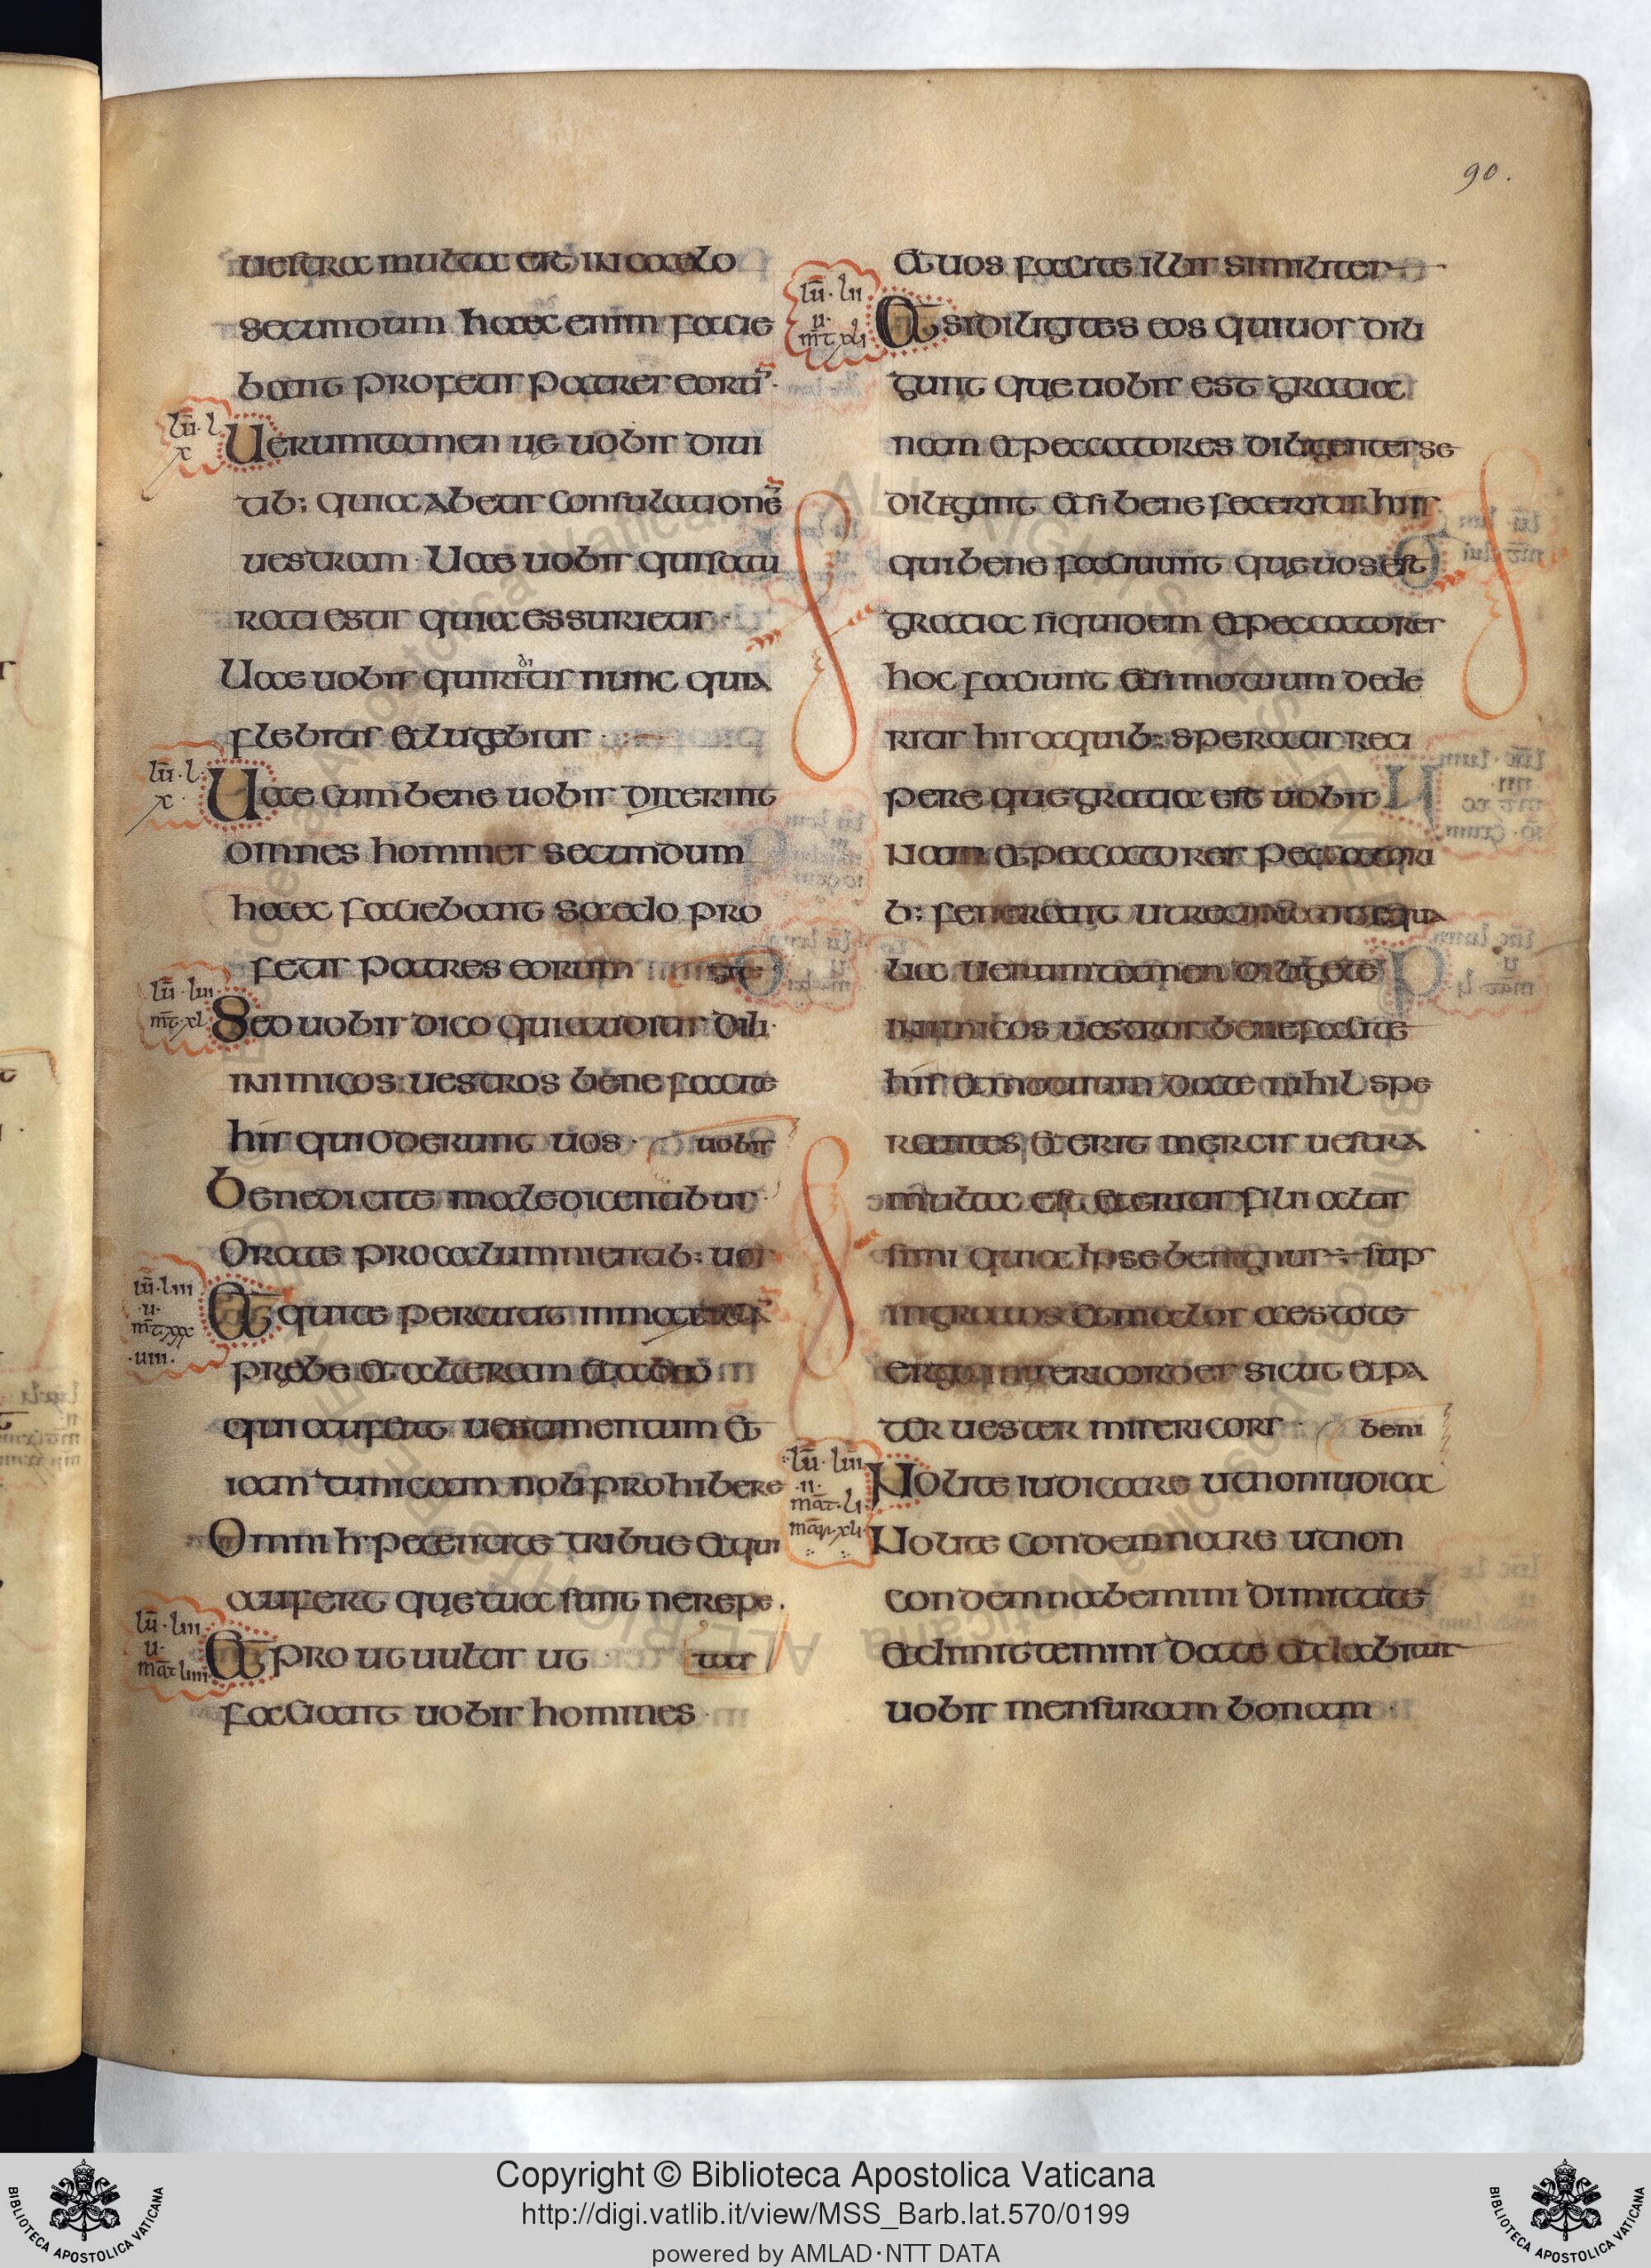 90.
uestra multa est in caelo
secundum haec enim facie
bant profetis patres eorū
lū · l
x
Uerumtamen uę uobis diui
tib; quia abetis consulationē
uestram · Uae uobis qui satu
rati estis quia essurietis ·
Uae uobis qui ritis nunc quia
di
flebitis et lugebitis
lū · l
x ·
Uae cum bene uobis dixerint
omnes homines secundum
haec faciebant saedo pro
fetis patres eorum
lū · liii
mt̄ · xl
Sed uobis dico qui auditis dili
inimicos uestros bene facite
his qui oderunt uos · uobis
Benedicite maledicentibus
Orate pro calumnientib; uos
lū · liii
· u ·
mt̄ xxx
· uiii ·
Et qui te percutit in maxella
prębe et alteram et ab eo
qui aufert uestimentum et
iam tunicam noli prohibere
Omni h petenti te tribue et qui
aufert quę tua sunt ne repe .
lū · liii
u ·
mat liiii
Et pro ut uultis ut tas
faciant uobis homines
et uos facite illis similiter
lū · lii
u ·
mt̄ xli
Et si diligites eos qui uos dili
gunt quę uobis est gratia
nam et peccatores diligentes se
diligunt et si bene feceritis his
qui bene faciunt quę uos est
gratia siquidem et peccatores
hoc faciunt et si motuum dede
ritis his a quib; speratis reci
pere que gratia est uobis
Nam et peccatores peccatori
b; fenerant ut recipiant equa
lia uerumtamen diligete
inimicos uestros bene facite
his et motuum date nihil spe
rantes et erit mercis uestra
multa est et eritis filii altis
simi quia ipse benignus est sup
ingratos et malos aestote
ergo misericordes sicut et pa
ter uester misericors · bemi
lū · liii
· ii ·
mat · li
mar · xli
Nolite iudicare ut non iudica
Nolite condemnare ut non
condemnabemini dimittite
et dimittemini date et dabitur
uobis mensuram bonam ·
Copyright © Biblioteca Apostolica Vaticana
http://digi.vatlib.it/view/MSS_Barb.lat.570/0199
powered by AMLAD·NTT DATA
BIBLIOTECA APOSTOLICA VATICANA
BIBLIOTECA APOSTOLICA VATICANA